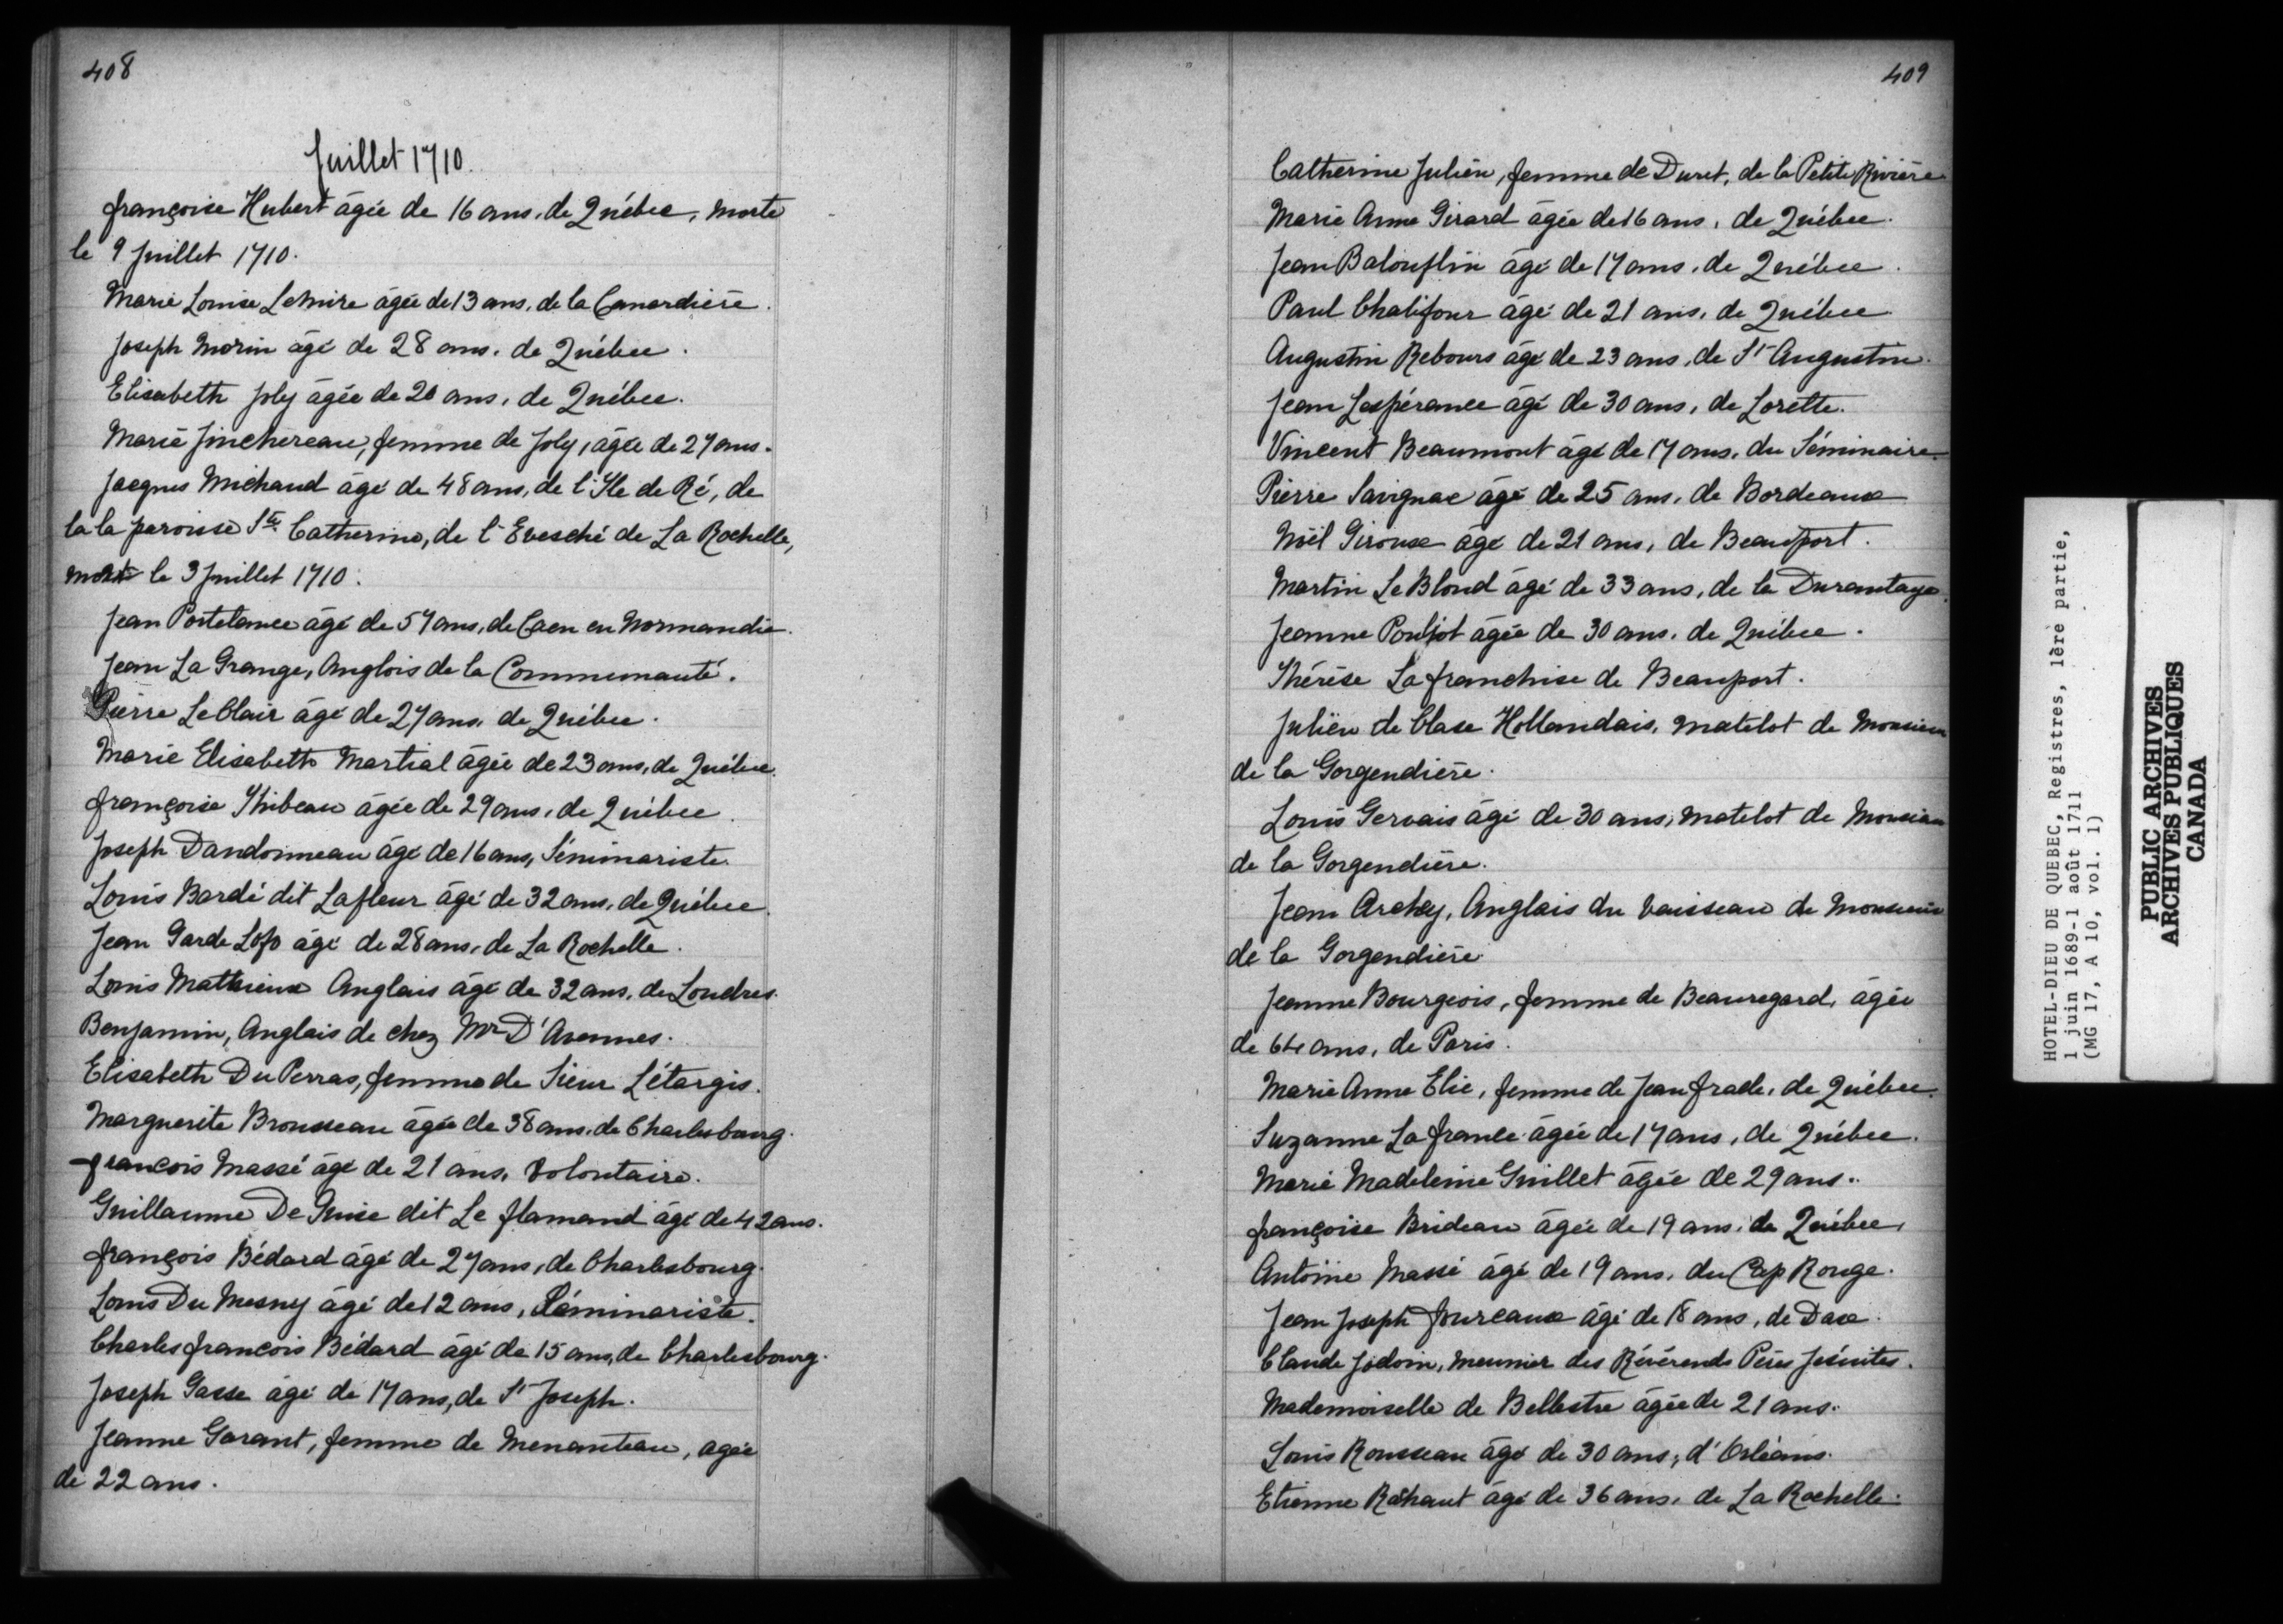 408
Juillet 1710.
françoise Hubert âgée de 16 ans, de Québec, morte
le 9 Juillet 1710.
Marie Louise LeMire âgée de 13 ans, de la Canardière.
Joseph Morin âgé de 28 ans, de Québec.
Elisabeth Joly âgée de 20 ans, de Québec.
Marie Jinchereau, femme de Joly, âgée de 27 ans.
Jacques Michaud âgé de 48 ans, de l'Ile de Ré, de
la la paroisse Ste Catherine, de l'Evesché de La Rochelle,
mort le 3 Juillet 1710.
Jean Portelance âgé de 57 ans, de Caen en Normandie.
Jean La Grange, Anglois de la Communauté.
Pierre LeClair âgé de 27 ans, de Québec.
Marie Elisabeth Martial âgée de 23 ans, de Québec.
françoise Thibeau âgée de 29 ans, de Québec.
Joseph Dandonneau âgé de 16 ans, Séminariste.
Louis Bardé dit Lafleur âgé de 32 ans, de Québec.
Jean Garde âgé de 28 ans, de La Rochelle.
Louis Mathieux Anglais âgé de 32 ans, de Londres.
Benjamin, Anglais de chez Mr D'Avennes.
Elisabeth Du Perras, femme de Sieur Létargis.
Marguerite Brousseau âgée de 38 ans, de Charlesbourg.
francois Massé âgé de 21 ans, Volontaire.
Guillaume De Guise dit Le flamand âgé de 42 ans.
françois Bédard âgé de 27 ans, de Charlesbourg.
Louis Du Mesny âgé de 12 ans, Séminariste.
Charles francois Bédard âgé de 15 ans, de Charlesbourg.
Joseph Gasse âgé de 17 ans, de St Joseph.
Jeanne Garant, femme de Menanteau, agée
de 22 ans.
409
Catherine Julien, femme de Duret, de la Petite Rivière
Marie Anne Girard âgée de 16 ans, de Québec.
Jean Balouflin âgé de 17 ans, de Québec.
Paul Chalifour âgé de 21 ans, de Québec
Augustin Rebours âgé de 23 ans, de St Augustin.
Jean Lespérance âgé de 30 ans, de Lorette.
Vincent Beaumont âgé de 17 ans, du Séminaire.
Pierre Savignac âgé de 25 ans, de Bordeaux
Noël Giroux âgé de 21 ans, de Beauport.
Martin Le Blond âgé de 33 ans, de la Durantaye.
Jeanne Pouljot âgée de 30 ans, de Québec.
Thérèse La franchise de Beauport.
Julien de Clase Hollandais, matelot de Monsieur
de la Gorgendière.
Louis Gervais âgé de 30 ans, matelot de Monsieur
de la Gorgendière.
Jean Archey, Anglais du vaisseau de Monsieur
de la Gorgendière.
Jeanne Bourgeois, femme de Beauregard, âgée
de 64 ans, de Paris.
Marie Anne Elie, femme de Jean frade, de Québec.
Suzanne La france âgée de 17 ans, de Québec.
Marie Madeleine Guillet âgée de 29 ans.
françoise Brideau âgée de 19 ans, de Québec,
Antoine Massé âgé de 19 ans, du Cap Rouge.
Jean Joseph foureaux âgé de 18 ans, de Dax.
Claude Jodoin, meunier des Révérends Pères Jésuites.
Mademoiselle de Bellestre âgée de 21 ans.
Louis Rousseau âgé de 30 ans, d'Orléans.
Etienne âgé de 36 ans, de La Rochelle.
HOTEL-DIEU DE QUEBEC, Registres, 1ère partie,
1 juin 1689-1 août 1711
(MG 17, A 10, vol. 1)
PUBLIC ARCHIVES
ARCHIVES PUBLIQUES
CANADA